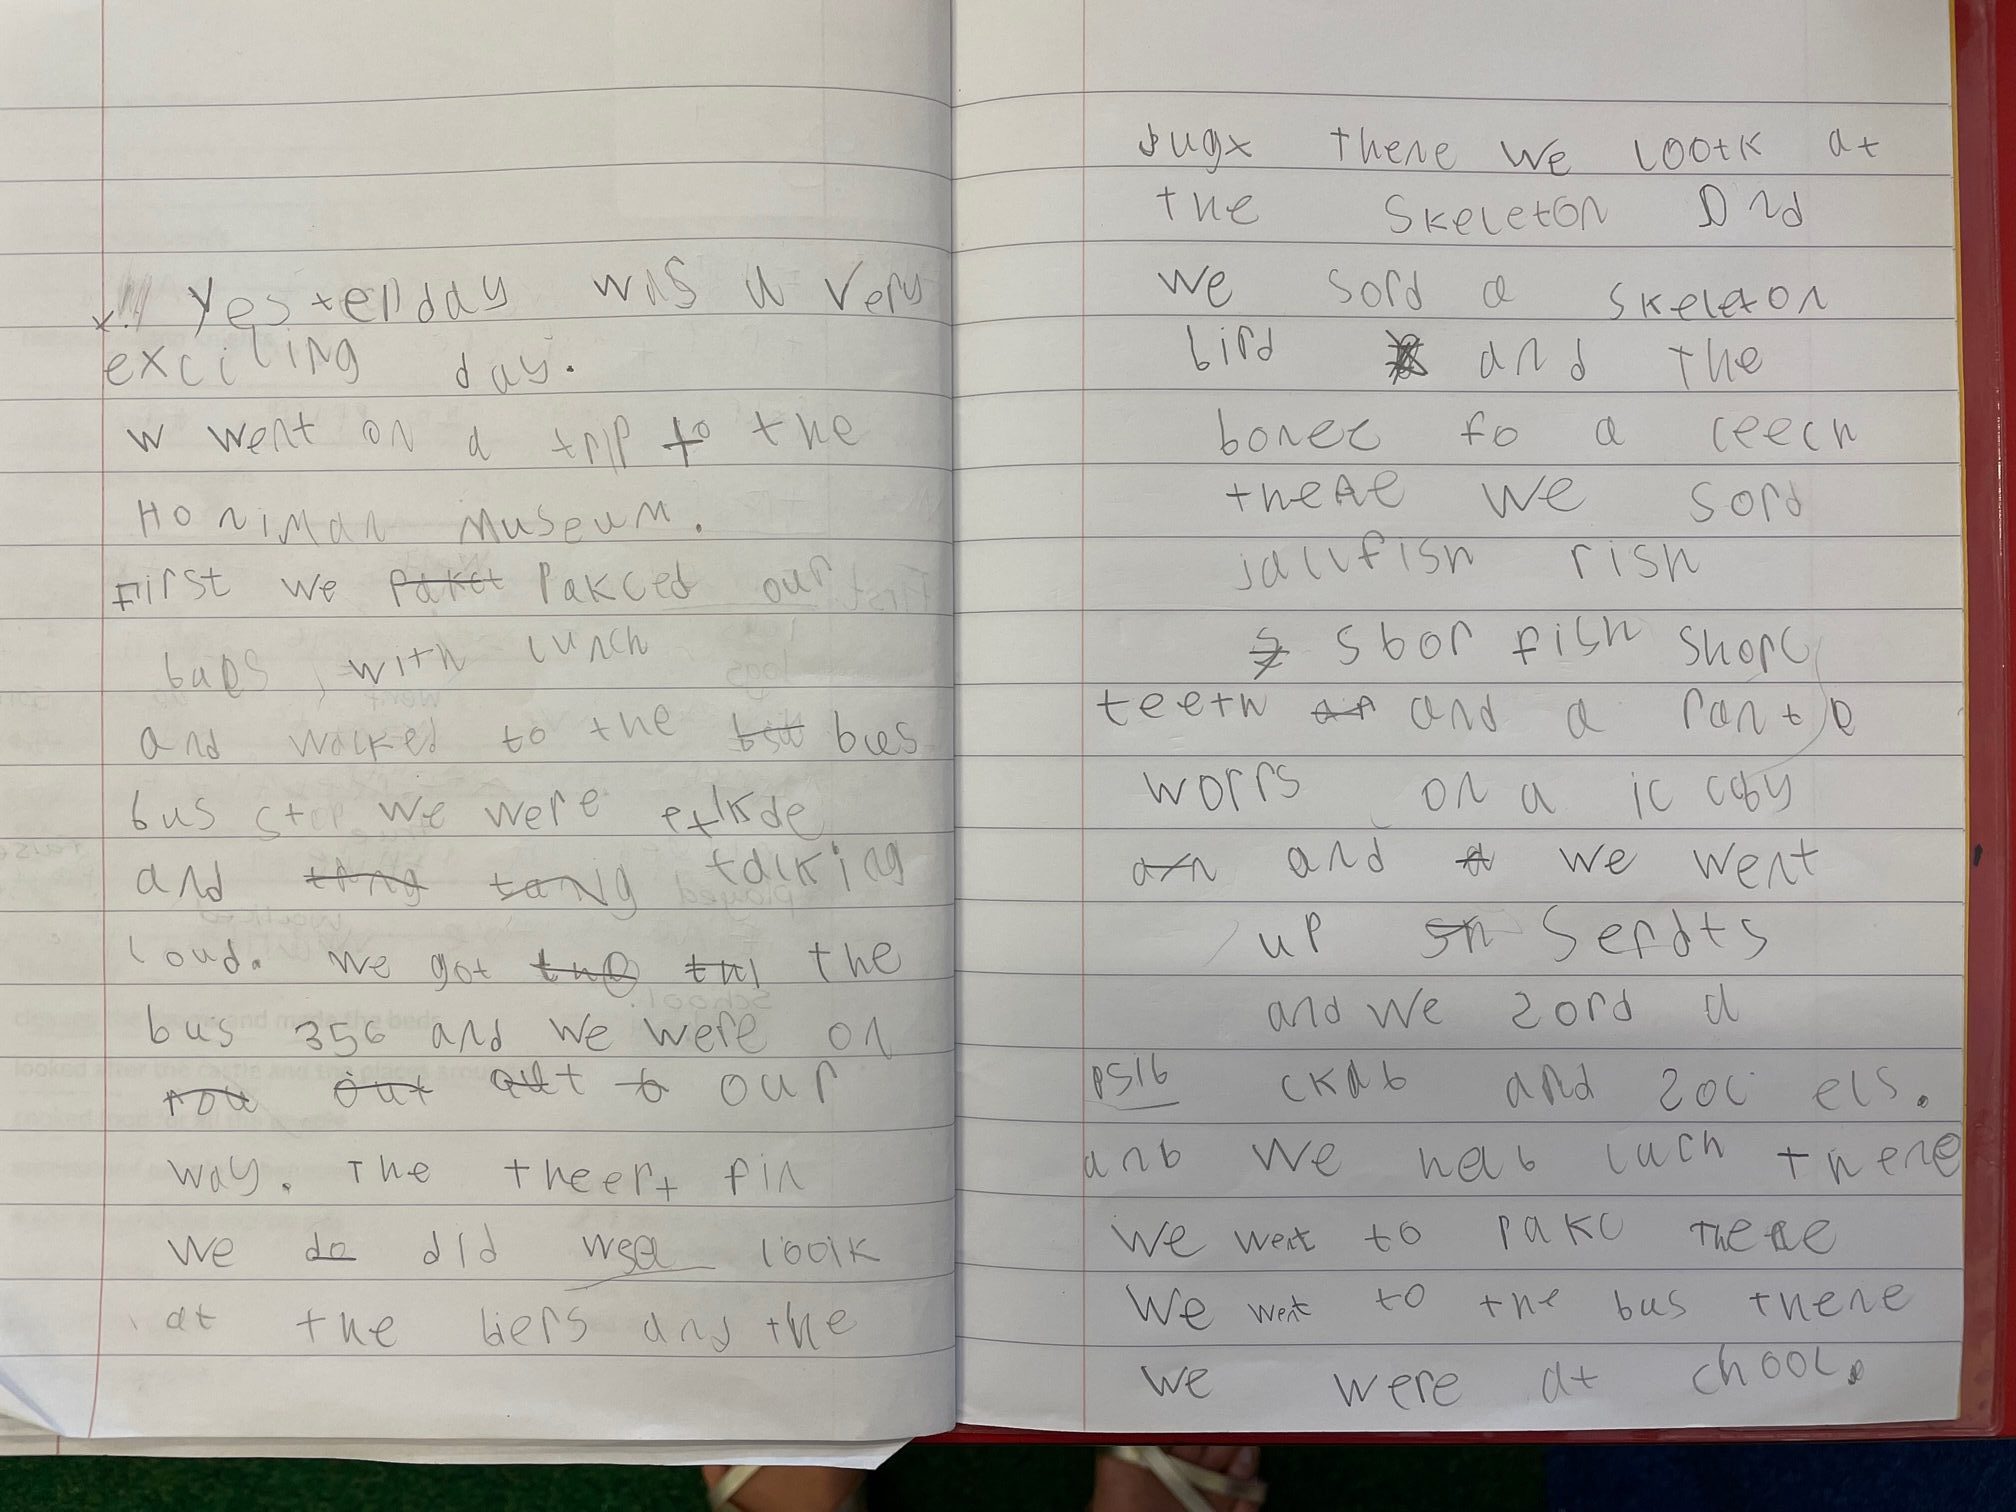 Yesterday was a very
exciting day.
w went on a trip to the
Honiman Museum.
First we pakct pakced our
bags, with lunch
and walked to the bus
bus stop we were exkde
and tang tanig talking
loud. we got the the
bus 356 and we were on
out out to our
way. The theert fin
we do did look
at the biers and the
bugx there we lootk at
the skeleton and
we sord a skeleton
bird and the
bonec fo a ceech
there we sord
jallfish rish
s sbor fish shorc
teeth ar and a
worrs on a
an and a we went
up sn serdts
and we sord a
ckab and soc els.
anb we hab luch there
we went to pakc there
we went to the bus there
we were at chool.